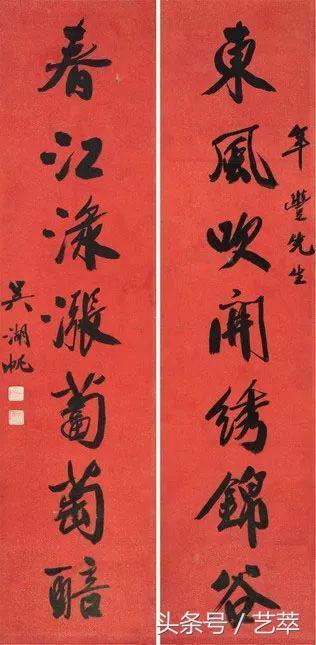 東風吹開綉錦谷
年豐先生
春江渌漲葡萄醅
吴湖帆
头条号 / 艺萃